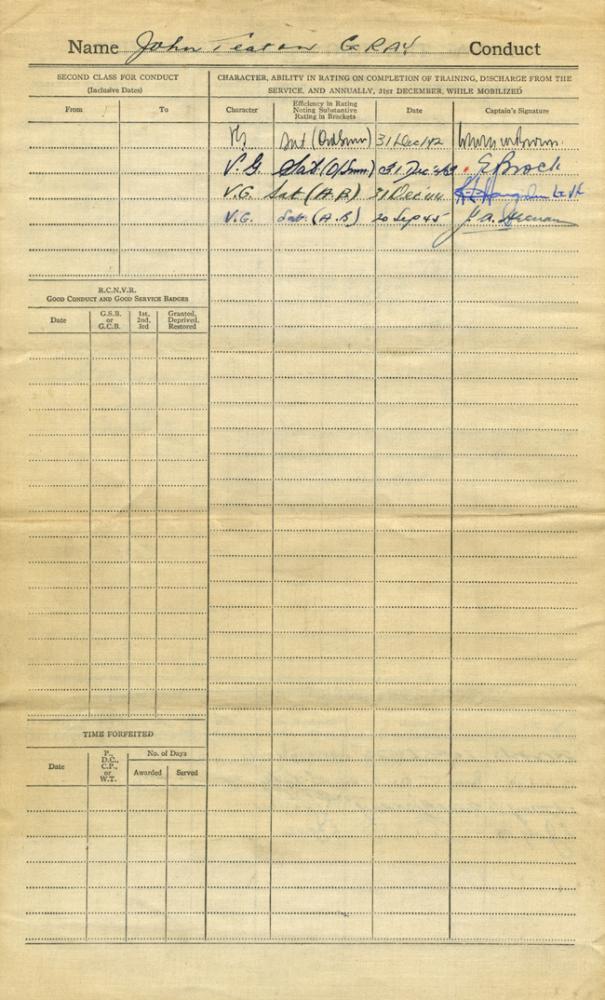 Name John GRAY Conduct
SECOND CLASS FOR CONDUCT
(Inclusive Dates)
From To
CHARACTER, ABILITY IN RATING ON COMPLETION OF TRAINING, DISCHARGE FROM THE
SERVICE, AND ANNUALLY, 31ST DECEMBER, WHILE MOBILIZED
Character
Efficiency in Rating
Noting Substantive
Rating in Brackets
Date
Captain's Signature
31 Dec 42
V.G. Sat. 31 Dec E Brock
V.G. Sat (A.B) 31 Dec 44
V.G. Sat. (A.B) 20 Sep 45
R.C.N.V.R.
GOOD CONDUCT AND GOOD SERVICE BADGES
Date
G.S.B.
or
G.C.B.
1st,
2nd,
3rd
Granted,
Deprived,
Restored
TIME FORFEITED
Date
P.,
D.C.,
C.P.,
or
W.T.
No. of Days
Awarded Served